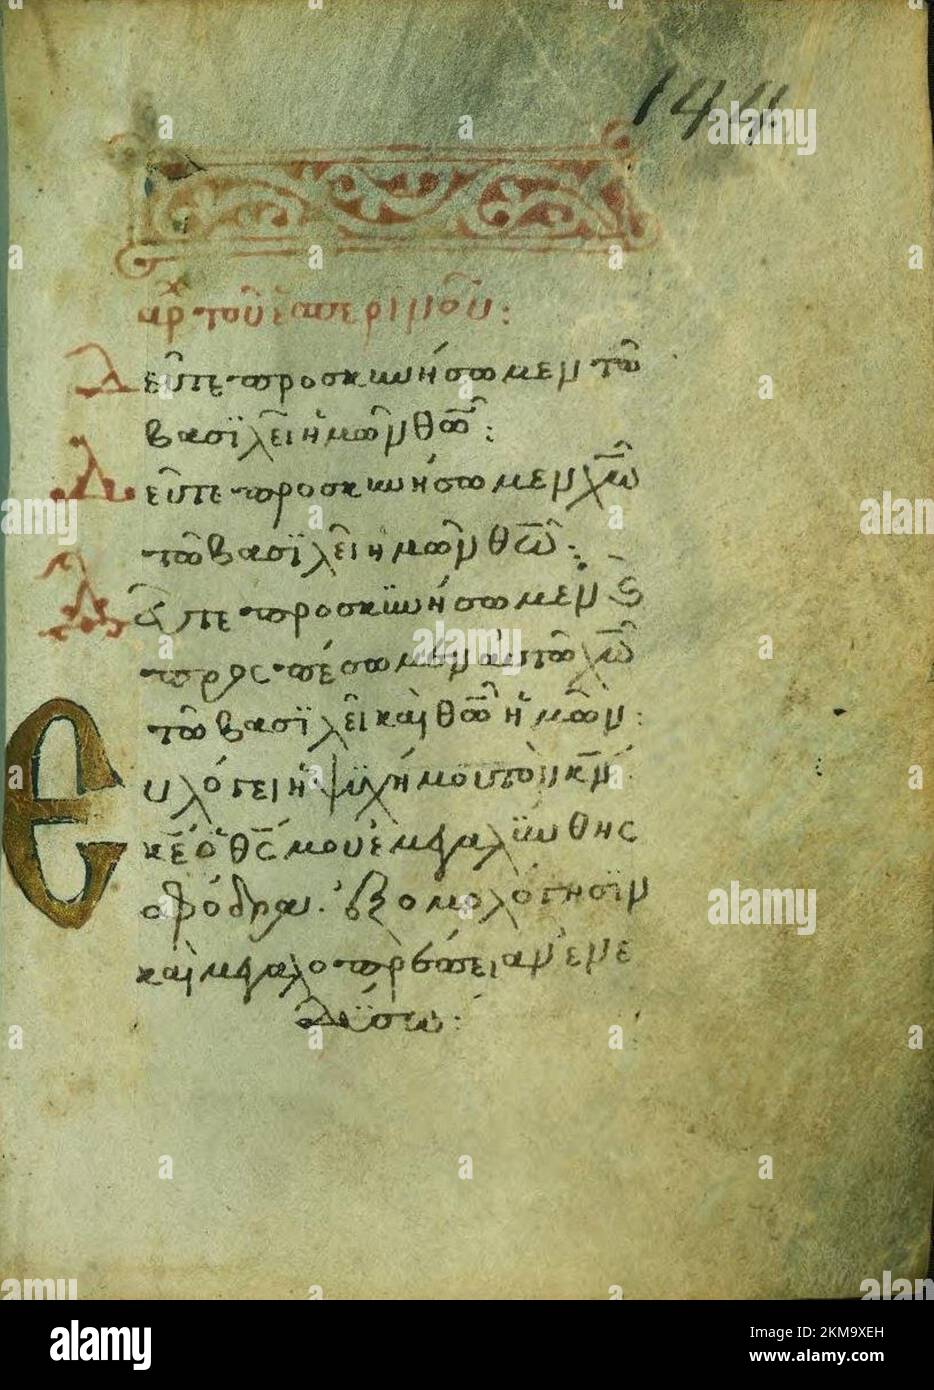 144
αρχ τοῦ ἑσπερινοῦ:
Δεῦτε προσκυνήσωμεν τῶ
βασϊλεῖ ἡμῶν θω:
Δεῦτε προσκυνήσωμεν χω
τῶ βασϊλεῖ ἡμῶν θω:
Δεῦτε προσκυνήσωμεν καὶ
προσπέσωμεν αὐτῶ χω
τῶ βασϊλεῖ καὶ θω ἡμῶν:
Εὐλόγει ἡ ψυχή μου τὸν κν
κε ὁ θς μου ἐμεγαλύνθης
σφόδρα. ἐξομολόγησϊν
καὶ μεγαλοπρέπειαν ἐνε
δύσω:
alamy
Image ID: 2KM9XEH
www.alamy.com